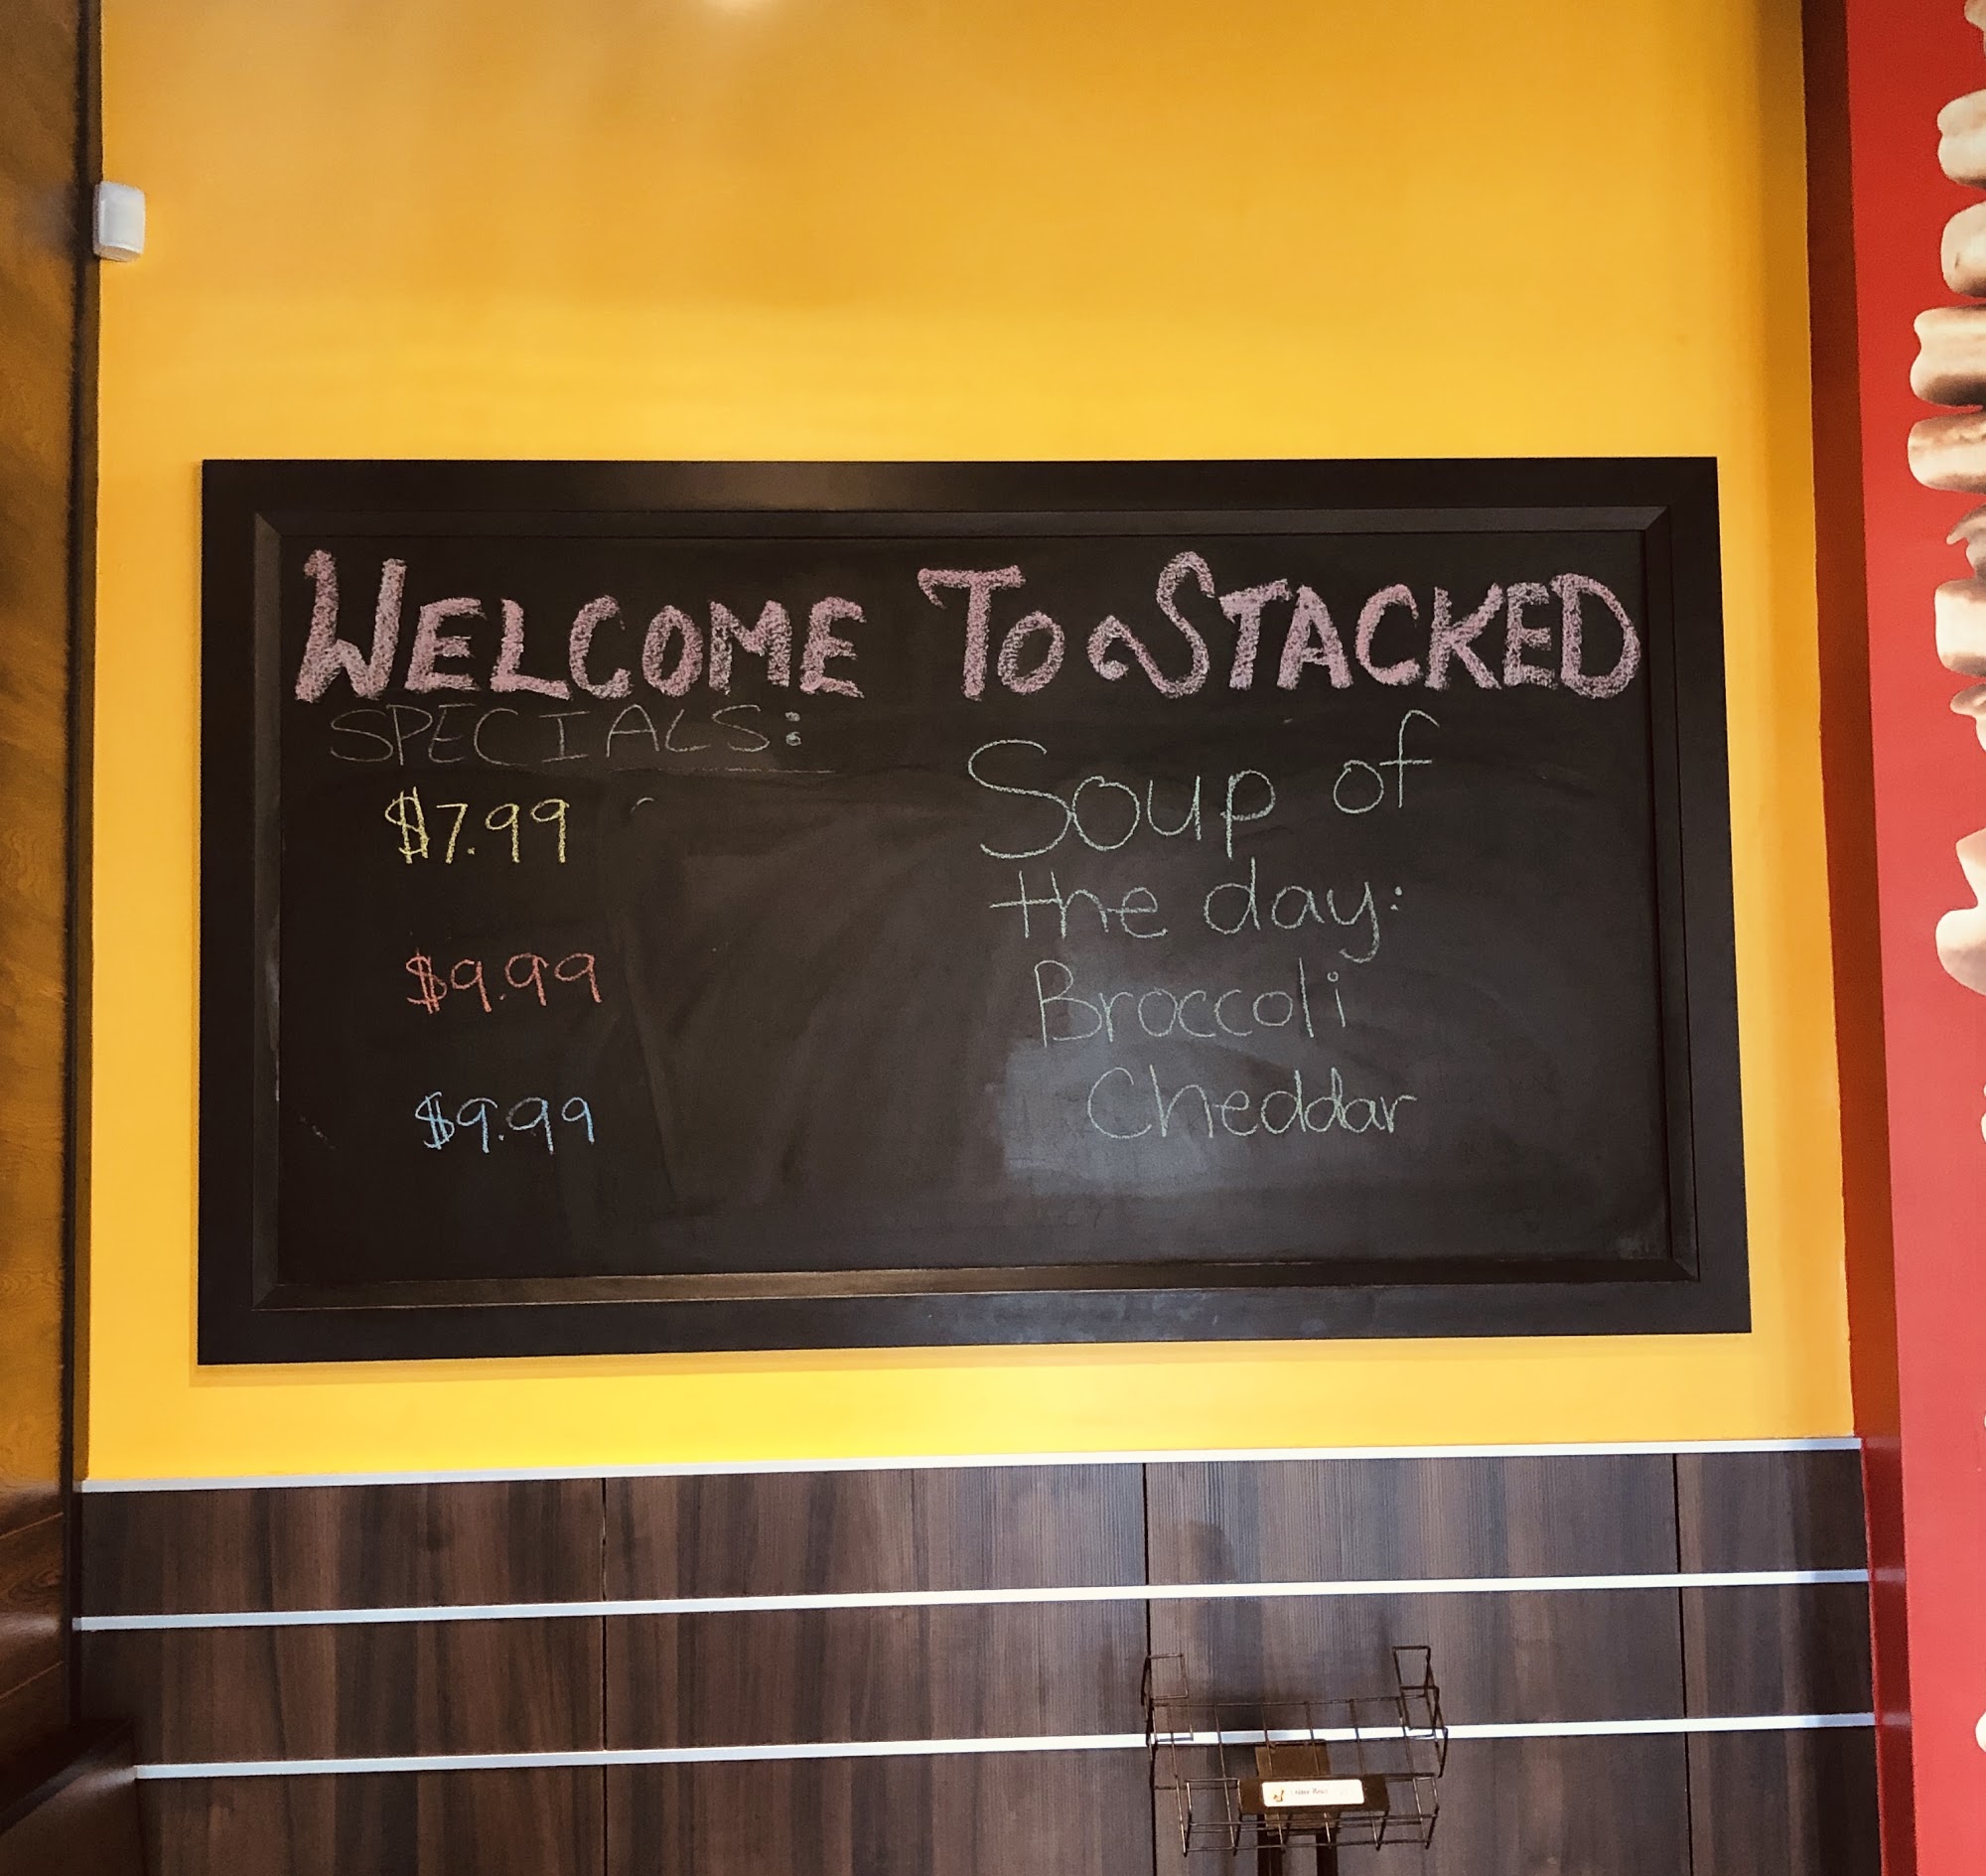 WELCOME TO STACKED
SPECIALS:
$7.99
$9.99
$9.99
Soup of
the day:
Broccoli
Cheddar